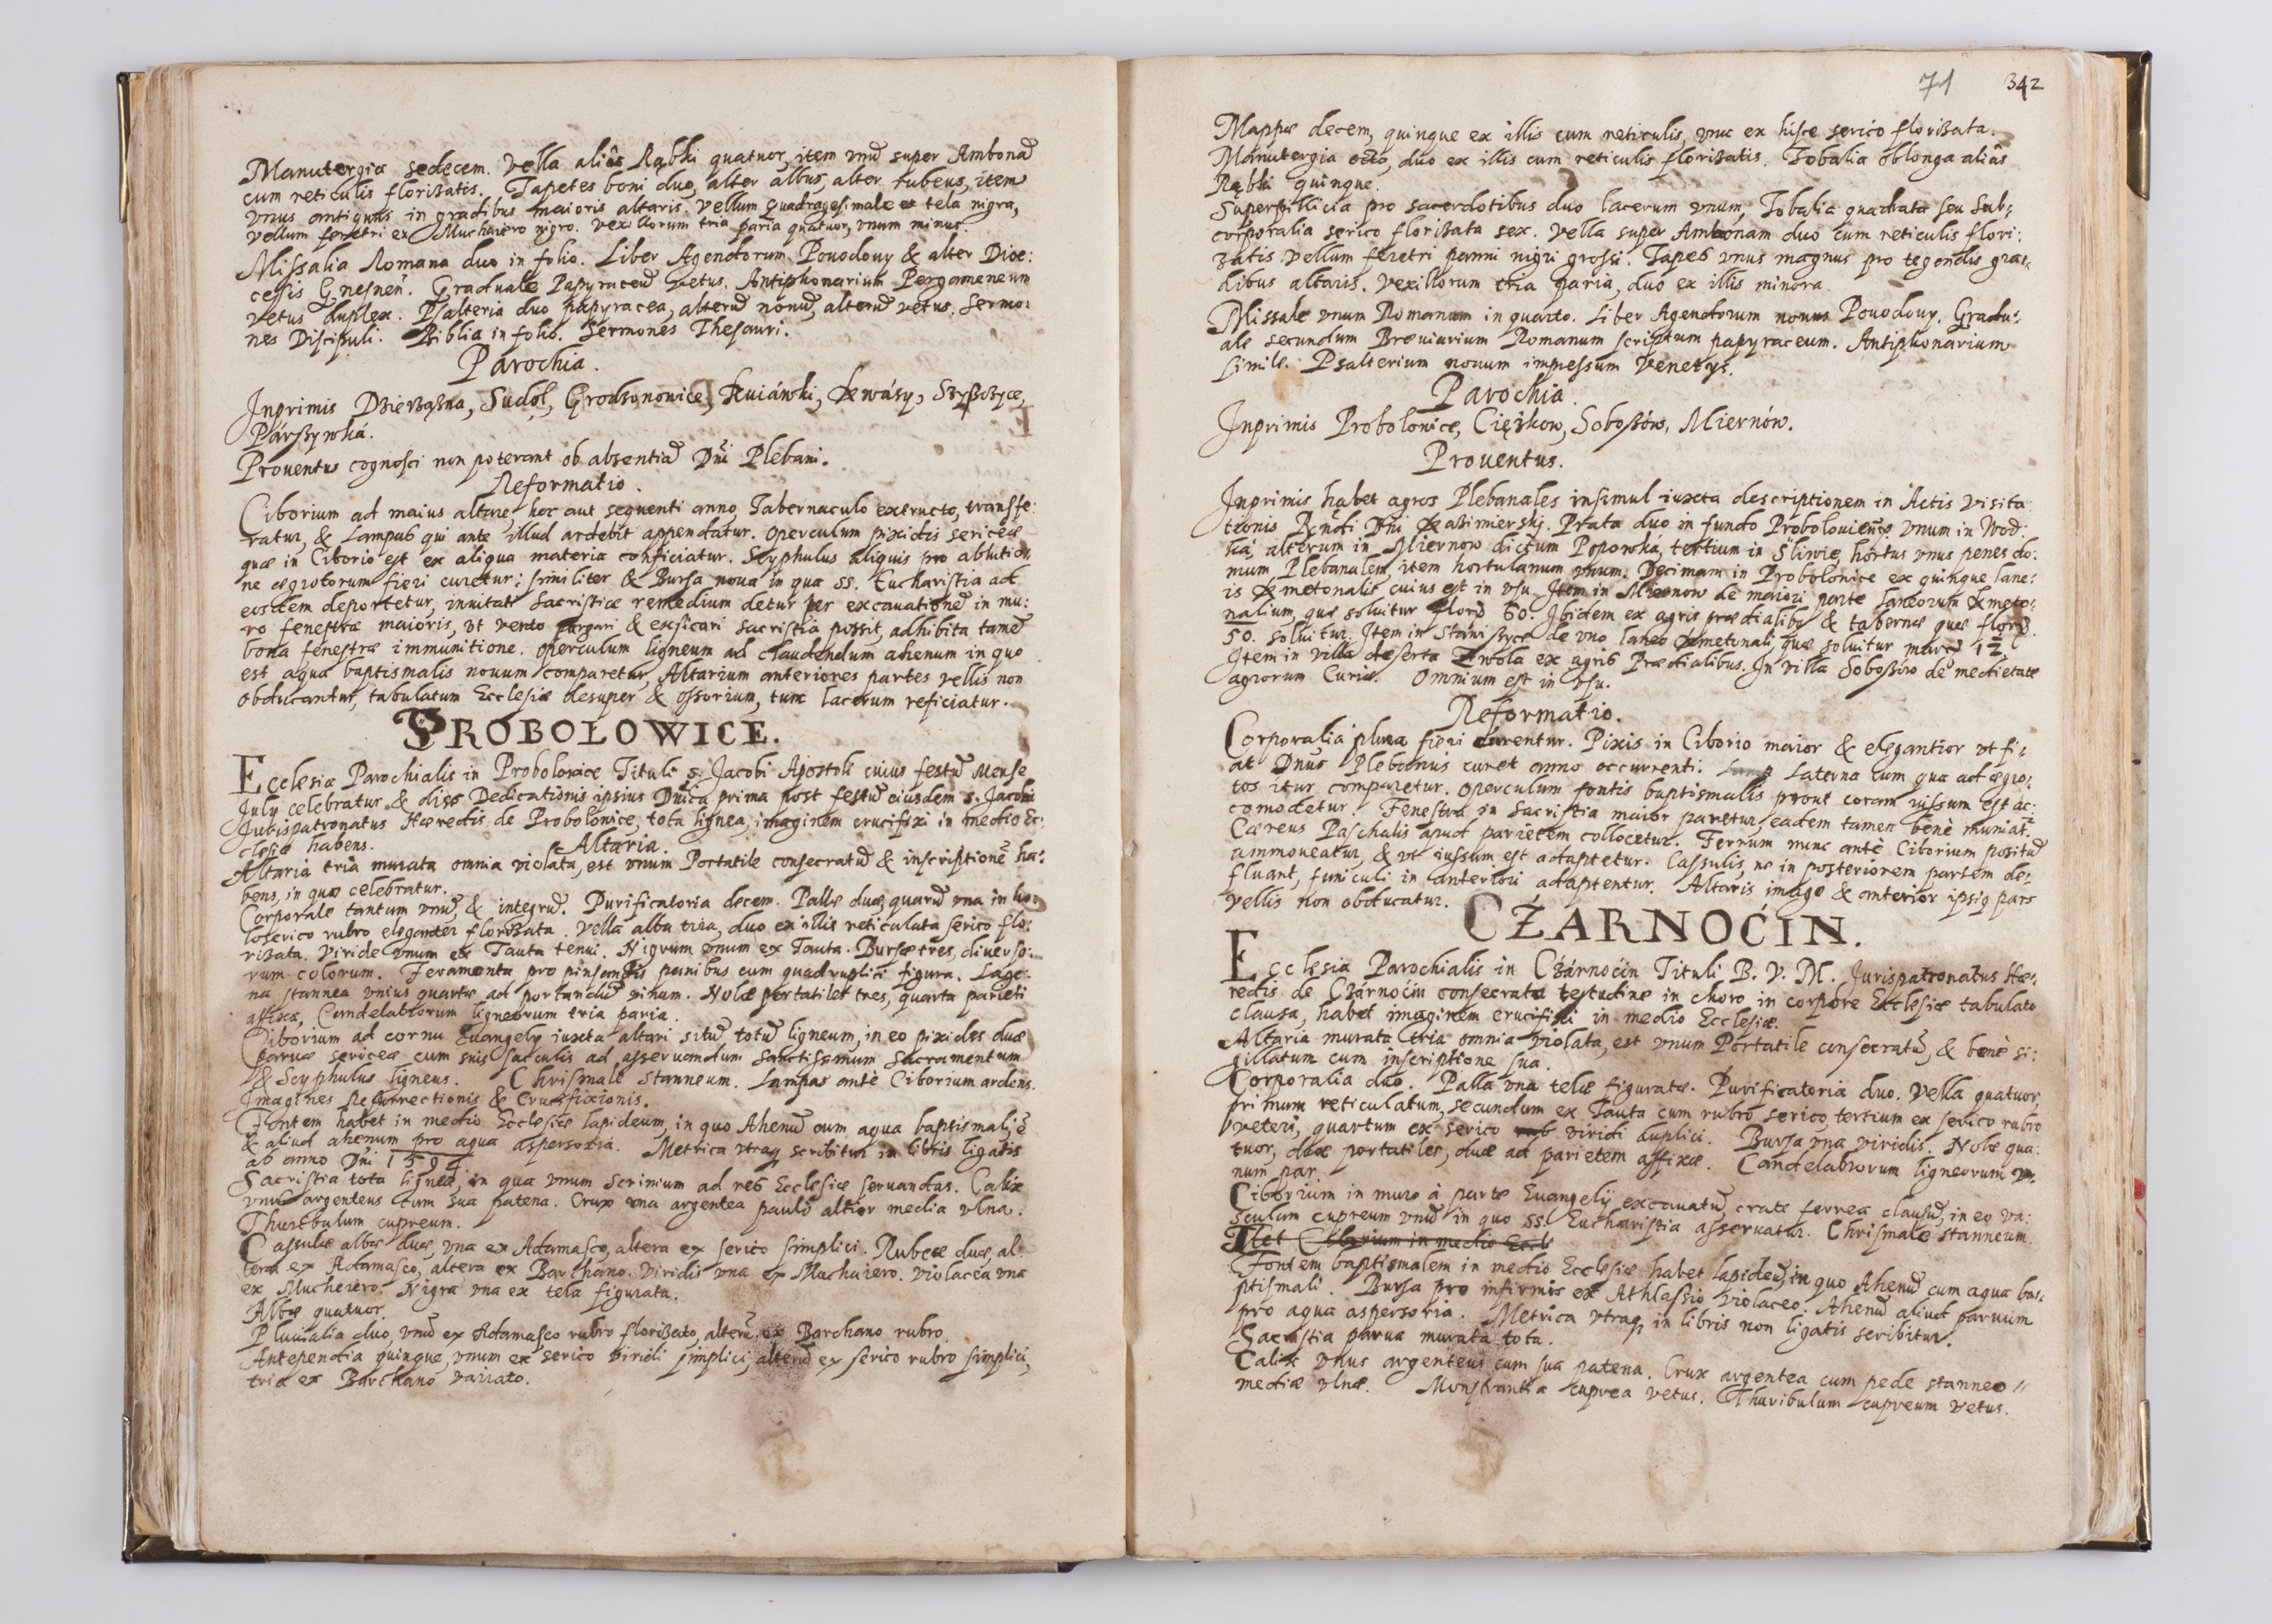 Manutergia sedecem. Vella aliâs Rąbki quatuor, item vnũ super Ambonã
cum reticulis florisatis. Tapetes boni duo, alter albus, alter rubeus, item
vnus antiquus in gradibus maioris altaris. Vellum Quadragesimale ex tela nigra,
Vellum feretri ex Muchaiero nigro. Vexillorum tria paria quatuor, vnum minus.
Missalia Romana duo in folio. Liber Agendorum Pouodouy & alter Dioe:
cesis Gnesnen. Graduale Papyraceũ vetus. Antiphonarium Pergameneum
vetus duplex. Psalteria duo papyracea, alterũ nouũ, alterũ vetus. Sermo:
nes Discipuli. Biblia in folio. Sermones Thesauri.
Parochia.
Inprimis Dzierążna, Sudoł, Grodzonowice, Kuiáwki, Kwásy, Szyszczyce,
Párszywká.
Prouentus cognosci non poterant ob absentiã Dñi Plebani.
Reformatio.
Ciborium ad maius altare hoc aut sequenti anno, Tabernaculo extructo, transfe:
ratur, & Lampas qui ante illud ardebit appendatur. Operculum pixidis sericeæ
quæ in Ciborio est ex aliqua materia conficiatur. Scyphulus aliquis pro ablutio:
ne ægrotorum fieri curetur: similiter & Bursa noua in qua SS. Eucharistia ad
eosdem deportetur, inuitati Sacristiæ remedium detur per excauationẽ in mu:
ro fenestræ maioris, vt vento purgari & exsicari Sacristia possit, adhibita tamẽ
bona fenestræ immunitione. Operculum ligneum ad claudendum ahenum in quo
est aqua baptismalis nouum comparetur, Altarium anteriores partes vellis non
obducantur, tabulatum Ecclesiæ desuper & ossorium, tunc lacerum reficiatur.
PROBOLOWICE.
Ecclesia Parochialis in Probolouice Tituli S. Jacobi Apostoli cuius festũ Mense
July celebratur & dies Dedicationis ipsius Dñica prima post festũ eiusdem S. Jacobi
Jurispatronatus Hæredis de Probolonice, tota lignea, imaginem crucifixi in medio Ec:
clesiæ habens.
Altaria.
Altaria tria murata omnia violata, est vnum Portatile consecratũ & inscriptionẽ ha:
bens, in quo celebratur.
Corporale tantum vnũ, & integrũ. Purificatoria decem. Pallæ duæ, quarũ vna in ho:
loserico rubro eleganter florisata. Vella alba tria, duo ex illis reticulata serico flo:
risata. Viride vnum ex Tauta tenui. Nigrum vnum ex Tauta. Bursæ tres, diuerso:
rum colorum. Feramenta pro pinsandis panibus cum quadruplici figura. Lage:
na stannea vnius quartæ ad portandũ vinum. Nolæ portatiles tres, quarta parieti
affixa, Candelabrorum ligneorum tria paria.
Ciborium ad cornu Euangely iuxta altari situ, totũ ligneum, in eo pixides duæ
paruæ sericeæ cum suis sacculis ad asseruandum Sanctissimum Sacramentum
& Scyphulus ligneus. Chrismale stanneum. Lampas antè Ciborium ardens.
Imagines Resurrectionis & Crucifixionis.
Fontem habet in medio Ecclesiæ lapideum, in quo Ahenũ cum aqua baptismali, ẽ
& aliud ahenum pro aqua aspersoria. Metrica vtraq scribitur in libris ligatis
ab anno Dñi 1594.
Sacristia tota lignea, in qua vnum scrinium ad res Ecclesiæ seruandas. Calix
vnus argenteus cum sua patena. Crux vna argentea paulò altior media vlna.
Thuribulum cupreum.
Cassulæ albæ duæ, vna ex Adamasco, altera ex serico simplici. Rubeæ duæ, al:
tera ex Adamasco, altera ex Barchano. Viridis vna ex Muchaiero. Violacea vna
ex Mucheiero. Nigra vna ex tela figurata.
Albæ quatuor.
Pluuialia duo, vnũ ex Adamasco rubro florisato, alterũ ex Barchano rubro.
Antependia quinque, vnum ex serico viridi simplici, alterũ ex serico rubro simplici,
tria ex Barchano variato.
71 342
Mappæ decem, quinque ex illis cum reticulis, vna ex hisce serico florisata.
Manutergia octo, duo ex illis cum reticulis florisatis. Tobalia oblonga aliâs
Rąbki quinque.
Superpillicia pro sacerdotibus duo lacerum vnum, Tobalia quadrata seu Sub:
corporalia serico florisata sex. Vella super Ambonam duo cum reticulis flori:
zatis Vellum feretri panni nigri grossi. Tapes vnus magnus pro tegendis gra:
dibus altaris. Vexillorum tria paria, duo ex illis minora.
Missale vnum Romanum in quarto. Liber Agendorum nouus Pouodouy. Gradu:
ale secundum Breuiarium Romanum scriptum papyraceum. Antiphonarium
simile. Psalterium nouum impressum Venetys.
Parochia.
Inprimis Probolonice, Ciężkow, Soboszów, Miernów.
Prouentus.
Inprimis habet agros Plebanales insimul iuxta descriptionem in Actis visita:
tionis Rñdi Dñi Kazimierskj. Prata duo in fundo Probolouicensi vnum in Wod:
ká, alterum in Miernow dictum Popowká, tertium in Śliwie, hortus vnus penes do:
mum Plebanalem, item hortulanum vnum. Decimam in Probolonice ex quinque lane:
is Kmetonalis cuius est in vsu. Item in Miernow de maiori parte laneorum Kmeto:
nalium, quæ soluitur floro 60. Ibidem ex agris prædialibus & tabernæ quæ floro.
50. soluitur. Item in Stániszyce de vno laneo Kmetonali, quæ soluitur marc 12.
Item in villa deserta Zwola ex agris Prædialibus. In villa Soboszow de medietate
agrorum Curiæ. Omnium est in vsu.
Reformatio.
Corporalia plura fieri curentur. Pixis in Ciborio maior & elegantior vt fi:
at Dnus Plebanus curet anno occurrenti. Laterna cum qua ad ægro:
tos itur comparetur. Operculum fontis baptismalis prout coram iussum est ac:
comodetur. Fenestra in Sacristia maior paretur, eadem tamen benè muniat.
Cæreus Paschalis apud parietem collocetur. Ferrum nunc antè Ciborium positũ
ammoueatur, & vt iussum est adaptetur. Cassulis, ne in posteriorem partem de:
fluant, funiculi in anteriori adaptentur. Altaris imago & anterior ipsiq pars
vellis non obducatur.
CŹARNOĆIN.
Ecclesia Parochialis in Cźárnoćin Tituli B. V. M. Jurispatronatus Hæ:
redis de Cźárnoćin consecrata testudine in choro in corpore Ecclesiæ tabulato
clausa, habet imaginem crucifixi in medio Ecclesiæ.
Altaria murata tria omnia violata, est vnum Portatile consecratũ, & benè si:
gillatum cum inscriptione sua.
Corporalia duo. Palla vna telæ figuratæ. Purificatoria duo. Vella quatuor,
primum reticulatum, secundum ex Tauta cum rubro serico, tertium ex serico rubro
veteri, quartum ex serico viridi duplici. Bursa vna viridis. Nolæ qua:
tuor, duæ portatiles, duæ ad parietem affixæ. Candelabrorum ligneorum v:
num par.
Ciborium in muro à parte Euangelij excauatũ, crate ferrea clausũ, in eo va:
sculum cupreum vnũ in quo SS. Eucharistia asseruatur. Chrismale stanneum.
Ciborium in medio Eccle
Fontem baptismalem in medio Ecclesiæ habet lapideũ, in quo Ahenũ cum aqua ba:
ptismali. Bursa pro infirmis ex Athlassio violaceo. Ahenũ aliud paruum
pro aqua aspersoria. Metrica vtraq in libris non ligatis scribitur.
Sacristia parua murata tota.
Calix vnus argenteus cum sua patena. Crux argentea cum pede stanneo
mediæ vlnæ. Monstrantia cuprea vetus. Thuribulum cupreum vetus.